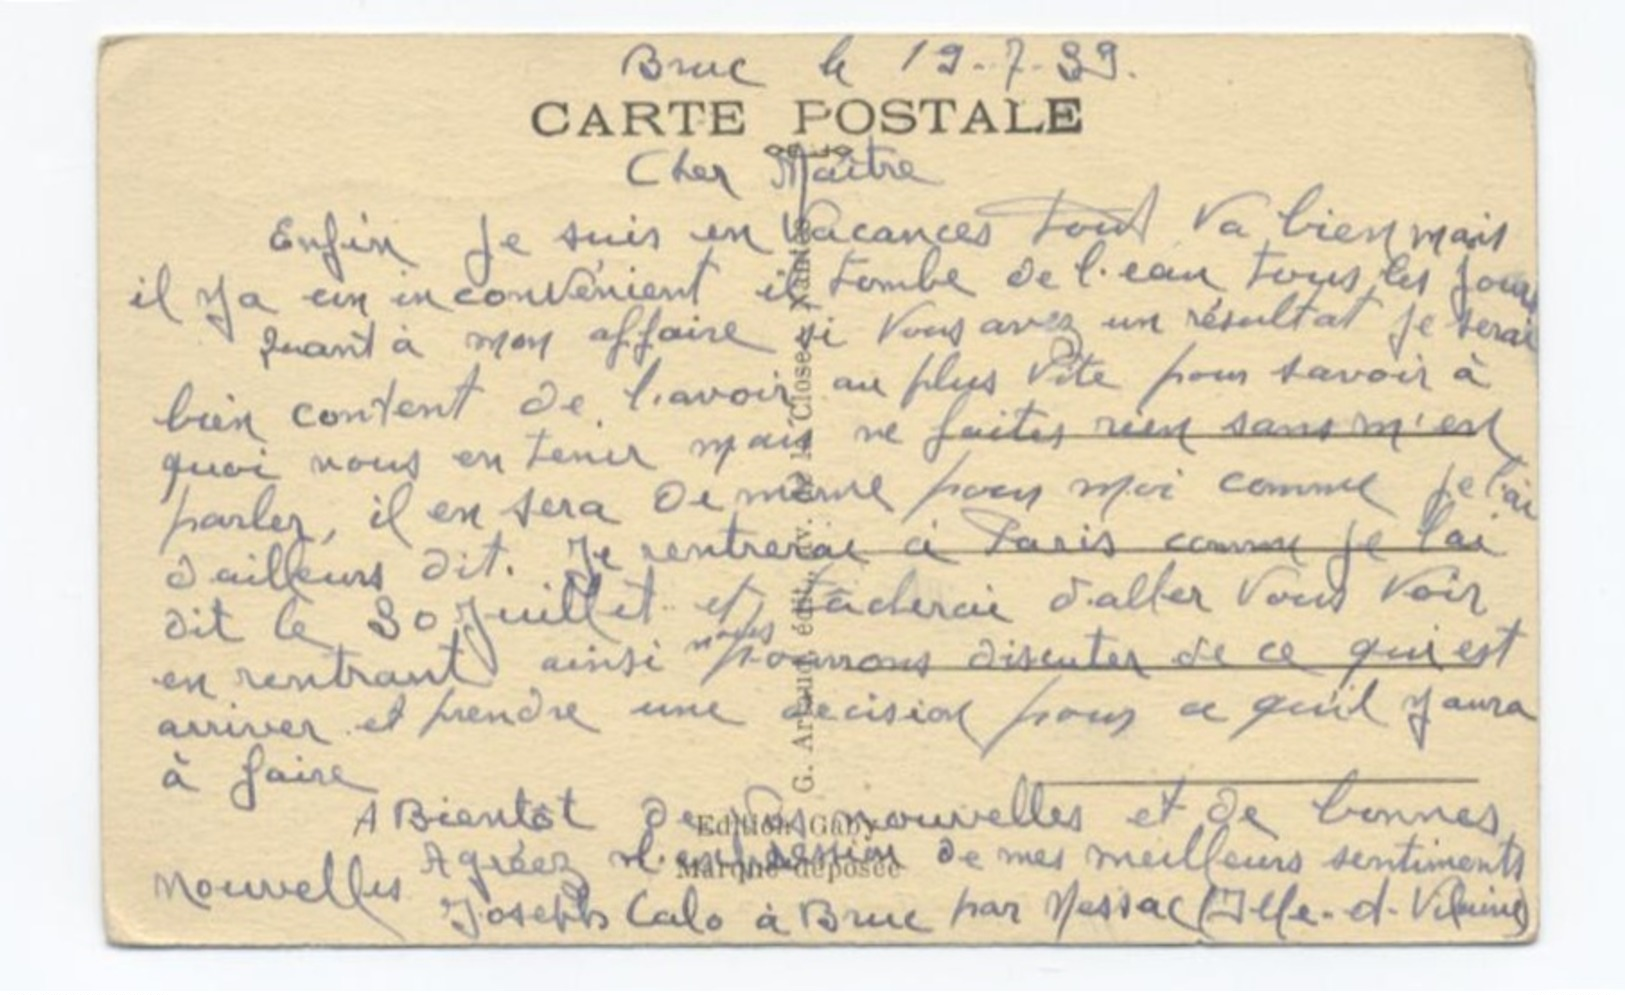 Bruc le 19-7-39.
CARTE POSTALE
Cher Maître
Enfin je suis en Vacances tout va bien mais
il y a un inconvénient il tombe de l'eau tous les jours
Quant à mon affaire si vous avez un résultat je serai
bien content de l'avoir au plus vite pour savoir à
quoi nous en tenir mais ne faites rien sans m'en
parler, il en sera de même pour moi comme je l'ai
d'ailleurs dit. Je rentrerai à Paris comme je l'ai
dit le 30 Juillet et tâcherai d'aller vous voir
en rentrant ainsi nous pourrons discuter de ce qui est
arriver et prendre une décision pour ce qu'il y aura
à faire
A Bientôt de vos nouvelles et de bonnes
nouvelles Agréez l'expression de mes meilleurs sentiments
Joseph Calo à Bruc par Messac (Ille-d-Vilaine)
G. Artaud, édit., de la Close, Nantes
Edition Gaby
Marque déposée